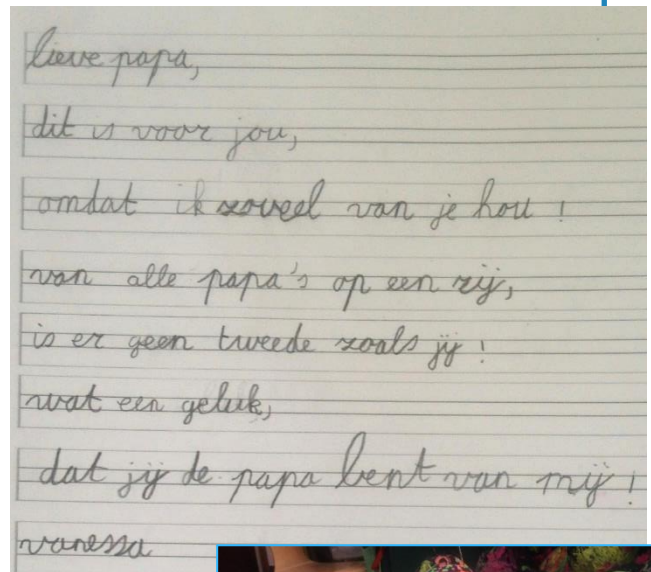 lieve papa,
dit is voor jou,
omdat ik zoveel van je hou !
van alle papa's op een rij,
is er geen tweede zoals jij !
wat een geluk,
dat jij de papa bent van mij !
vanessa